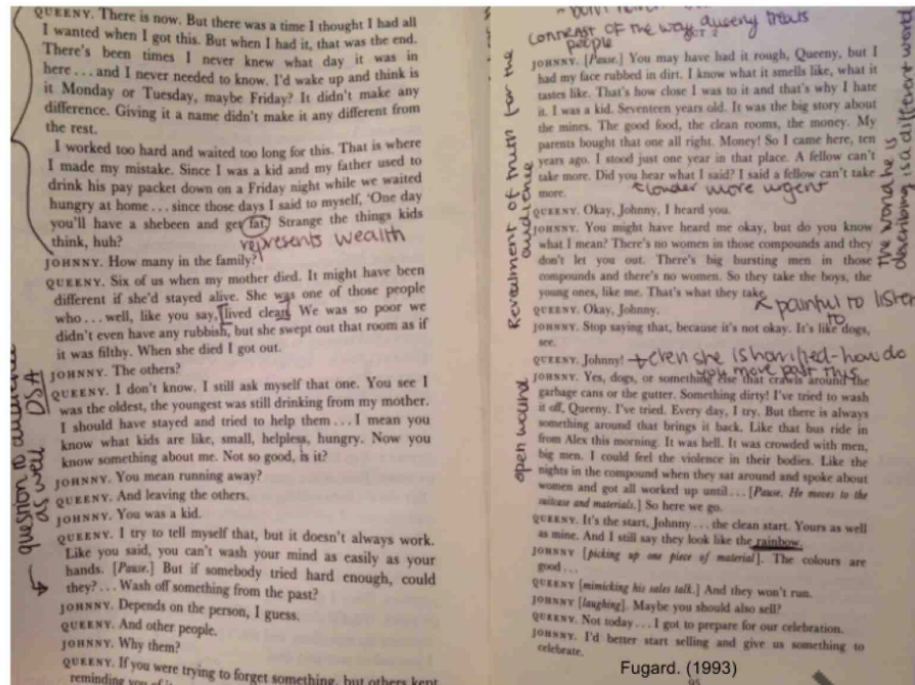 QUEENY. There is now. But there was a time I thought I had all
I wanted when I got this. But when I had it, that was the end.
There's been times I never knew what day it was in
here . . . and I never needed to know. I'd wake up and think is
it Monday or Tuesday, maybe Friday? It didn't make any
difference. Giving it a name didn't make it any different from
the rest.
I worked too hard and waited too long for this. That is where
I made my mistake. Since I was a kid and my father used to
drink his pay packet down on a Friday night while we waited
hungry at home . . . since those days I said to myself, 'One day
you'll have a shebeen and get fat.' Strange the things kids
think, huh?
represents wealth
JOHNNY. How many in the family?
QUEENY. Six of us when my mother died. It might have been
different if she'd stayed alive. She was one of those people
who . . . well, like you say, lived clean. We was so poor we
didn't even have any rubbish, but she swept out that room as if
it was filthy. When she died I got out.
JOHNNY. The others?
QUEENY. I don't know. I still ask myself that one. You see I
was the oldest, the youngest was still drinking from my mother.
I should have stayed and tried to help them . . . I mean you
know what kids are like, small, helpless, hungry. Now you
know something about me. Not so good, is it?
JOHNNY. You mean running away?
QUEENY. And leaving the others.
JOHNNY. You was a kid.
QUEENY. I try to tell myself that, but it doesn't always work.
Like you said, you can't wash your mind as easily as your
hands. [Pause.] But if somebody tried hard enough, could
they? . . . Wash off something from the past?
JOHNNY. Depends on the person, I guess.
QUEENY. And other people.
JOHNNY. Why them?
QUEENY. If you were trying to forget something, but others kept
reminding you of
question to audience
as well DSA
contrast of the way queeny treats
people
JOHNNY. [Pause.] You may have had it rough, Queeny, but I
had my face rubbed in dirt. I know what it smells like, what it
tastes like. That's how close I was to it and that's why I hate
it. I was a kid. Seventeen years old. It was the big story about
the mines. The good food, the clean rooms, the money. My
parents bought that one all right. Money! So I came here, ten
years ago. I stood just one year in that place. A fellow can't
take more. Did you hear what I said? I said a fellow can't take
more.
louder more urgent
QUEENY. Okay, Johnny, I heard you.
JOHNNY. You might have heard me okay, but do you know
what I mean? There's no women in those compounds and they
don't let you out. There's big bursting men in those
compounds and there's no women. So they take the boys, the
young ones, like me. That's what they take.
painful to listen
to
QUEENY. Okay, Johnny.
JOHNNY. Stop saying that, because it's not okay. It's like dogs,
see.
QUEENY. Johnny!
even she is horrified - how do
you move past this
JOHNNY. Yes, dogs, or something else that crawls around the
garbage cans or the gutter. Something dirty! I've tried to wash
it off, Queeny. I've tried. Every day, I try. But there is always
something around that brings it back. Like that bus ride in
from Alex this morning. It was hell. It was crowded with men,
big men. I could feel the violence in their bodies. Like the
nights in the compound when they sat around and spoke about
women and got all worked up until . . . [Pause. He moves to the
suitcase and materials.] So here we go.
QUEENY. It's the start, Johnny . . . the clean start. Yours as well
as mine. And I still say they look like the rainbow.
JOHNNY [picking up one piece of material]. The colours are
good . . .
QUEENY [mimicking his sales talk.] And they won't run.
JOHNNY [laughing]. Maybe you should also sell?
QUEENY. Not today . . . I got to prepare for our celebration.
JOHNNY. I'd better start selling and give us something to
celebrate.
Revealment of him for the
audience
open wound
The world he is
describing is a different world
Fugard. (1993)
95